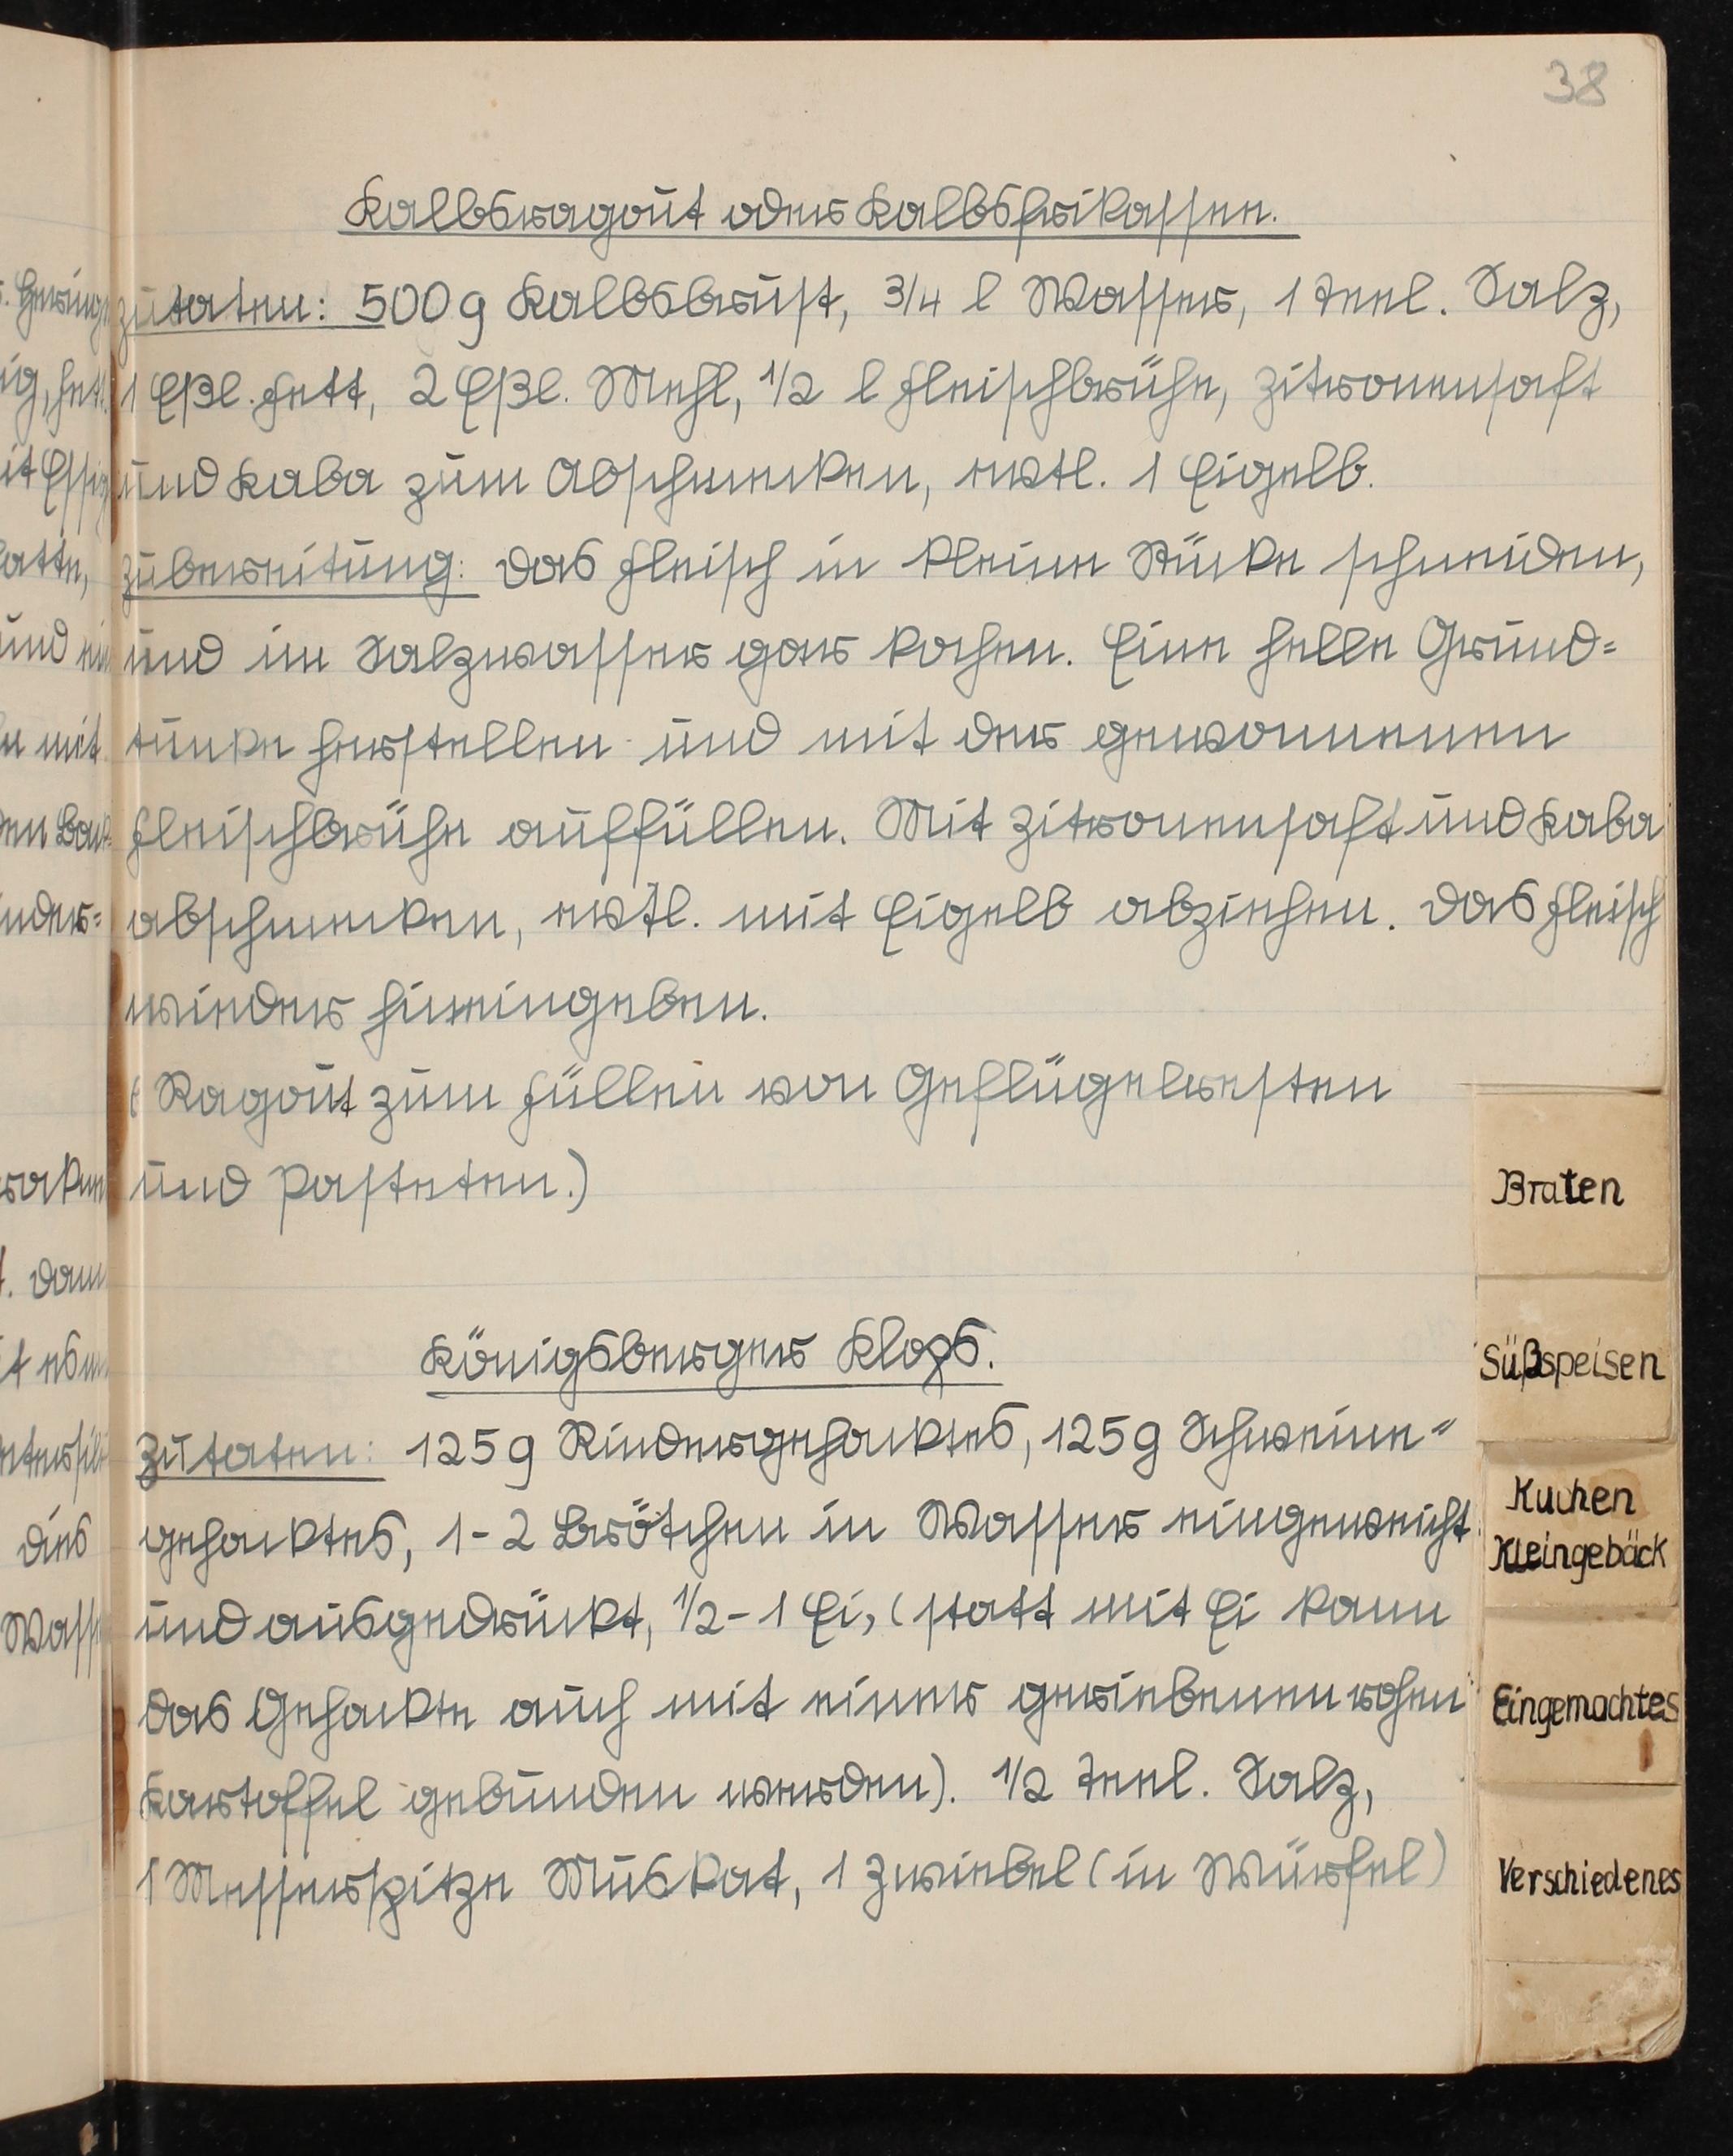 38
Kalbsragout oder Kalbsfrikassee.
Zutaten: 500 g Kalbsbrust, 3/4 l Wasser, 1 Teel. Salz,
1 Eßl. Fett, 2 Eßl. Mehl, 1/2 l Fleischbrühe, Zitronensaft
und Kaba zum Abschmecken, evtl. 1 Eigelb.
Zubereitung: Das Fleisch in kleine Stücke schneiden,
und im Salzwasser gar kochen. Eine helle Grund=
tunke herstellen und mit der gewonnenen
Fleischbrühe auffüllen. Mit Zitronensaft und Kaba
abschmecken, evtl. mit Eigelb abziehen. Das Fleisch
wieder hineingeben.
(Ragout zum Füllen von Geflügelresten
und Pasteten.)
Königsberger Klops.
Zutaten: 125 g Rindergehacktes, 125 g Schweine=
gehacktes, 1-2 Brötchen in Wasser eingeweicht
und ausgedrückt, 1/2-1 Ei, (statt mit Ei kann
das Gehackte auch mit einer geriebenen rohen
Kartoffel gebunden werden). 1/2 Teel. Salz,
1 Messerspitze Muskat, 1 Zwiebel (in Würfel)
Braten
Süßspeisen
Kuchen
Kleingebäck
Eingemachtes
Verschiedenes